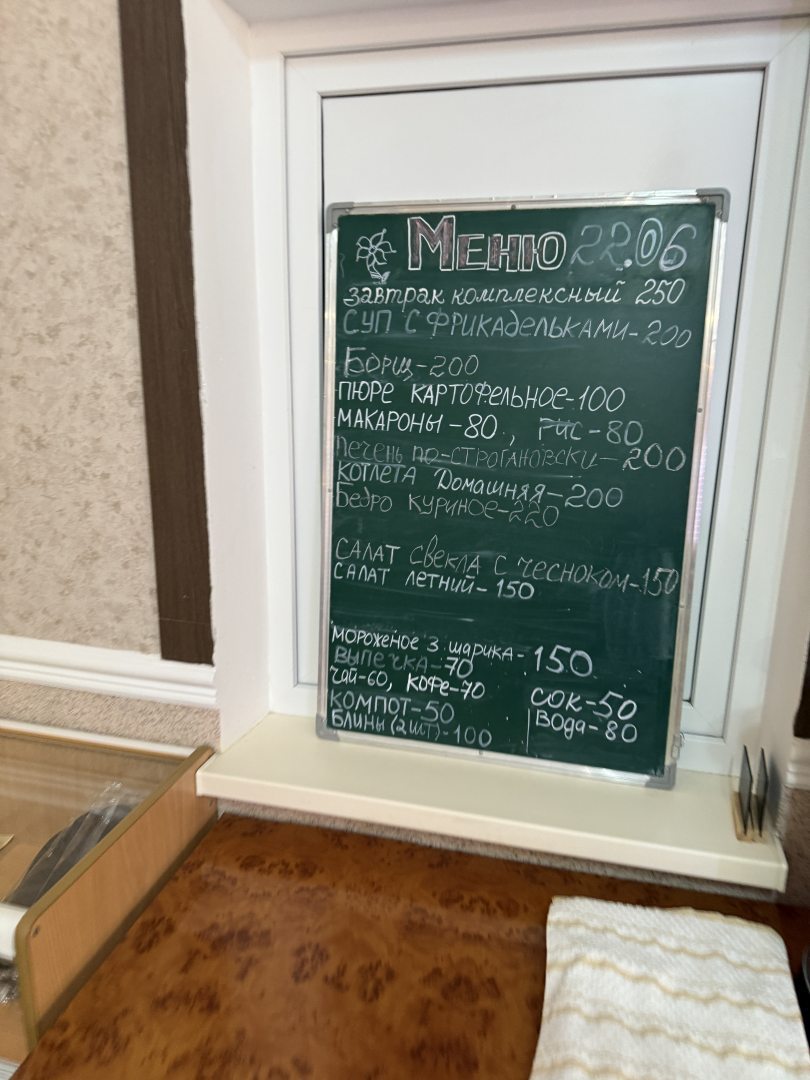 Меню 22.06
завтрак комплексный 250
СУП С ФРИКАДЕЛЬКАМИ-200
Борщ-200
ПЮРЕ КАРТОФЕЛЬНОЕ-100
МАКАРОНЫ-80., РИС-80
Печень по-строгановски-200
КОТЛЕТА Домашняя-200
Бедро куриное-220
САЛАТ свекла с чесноком-150
САЛАТ летний-150
Мороженое 3 шарика-150
Выпечка-70
Чай-60, Кофе-70
Сок-50
КОМПОТ-50
Вода-80
Блины (2шт)-100